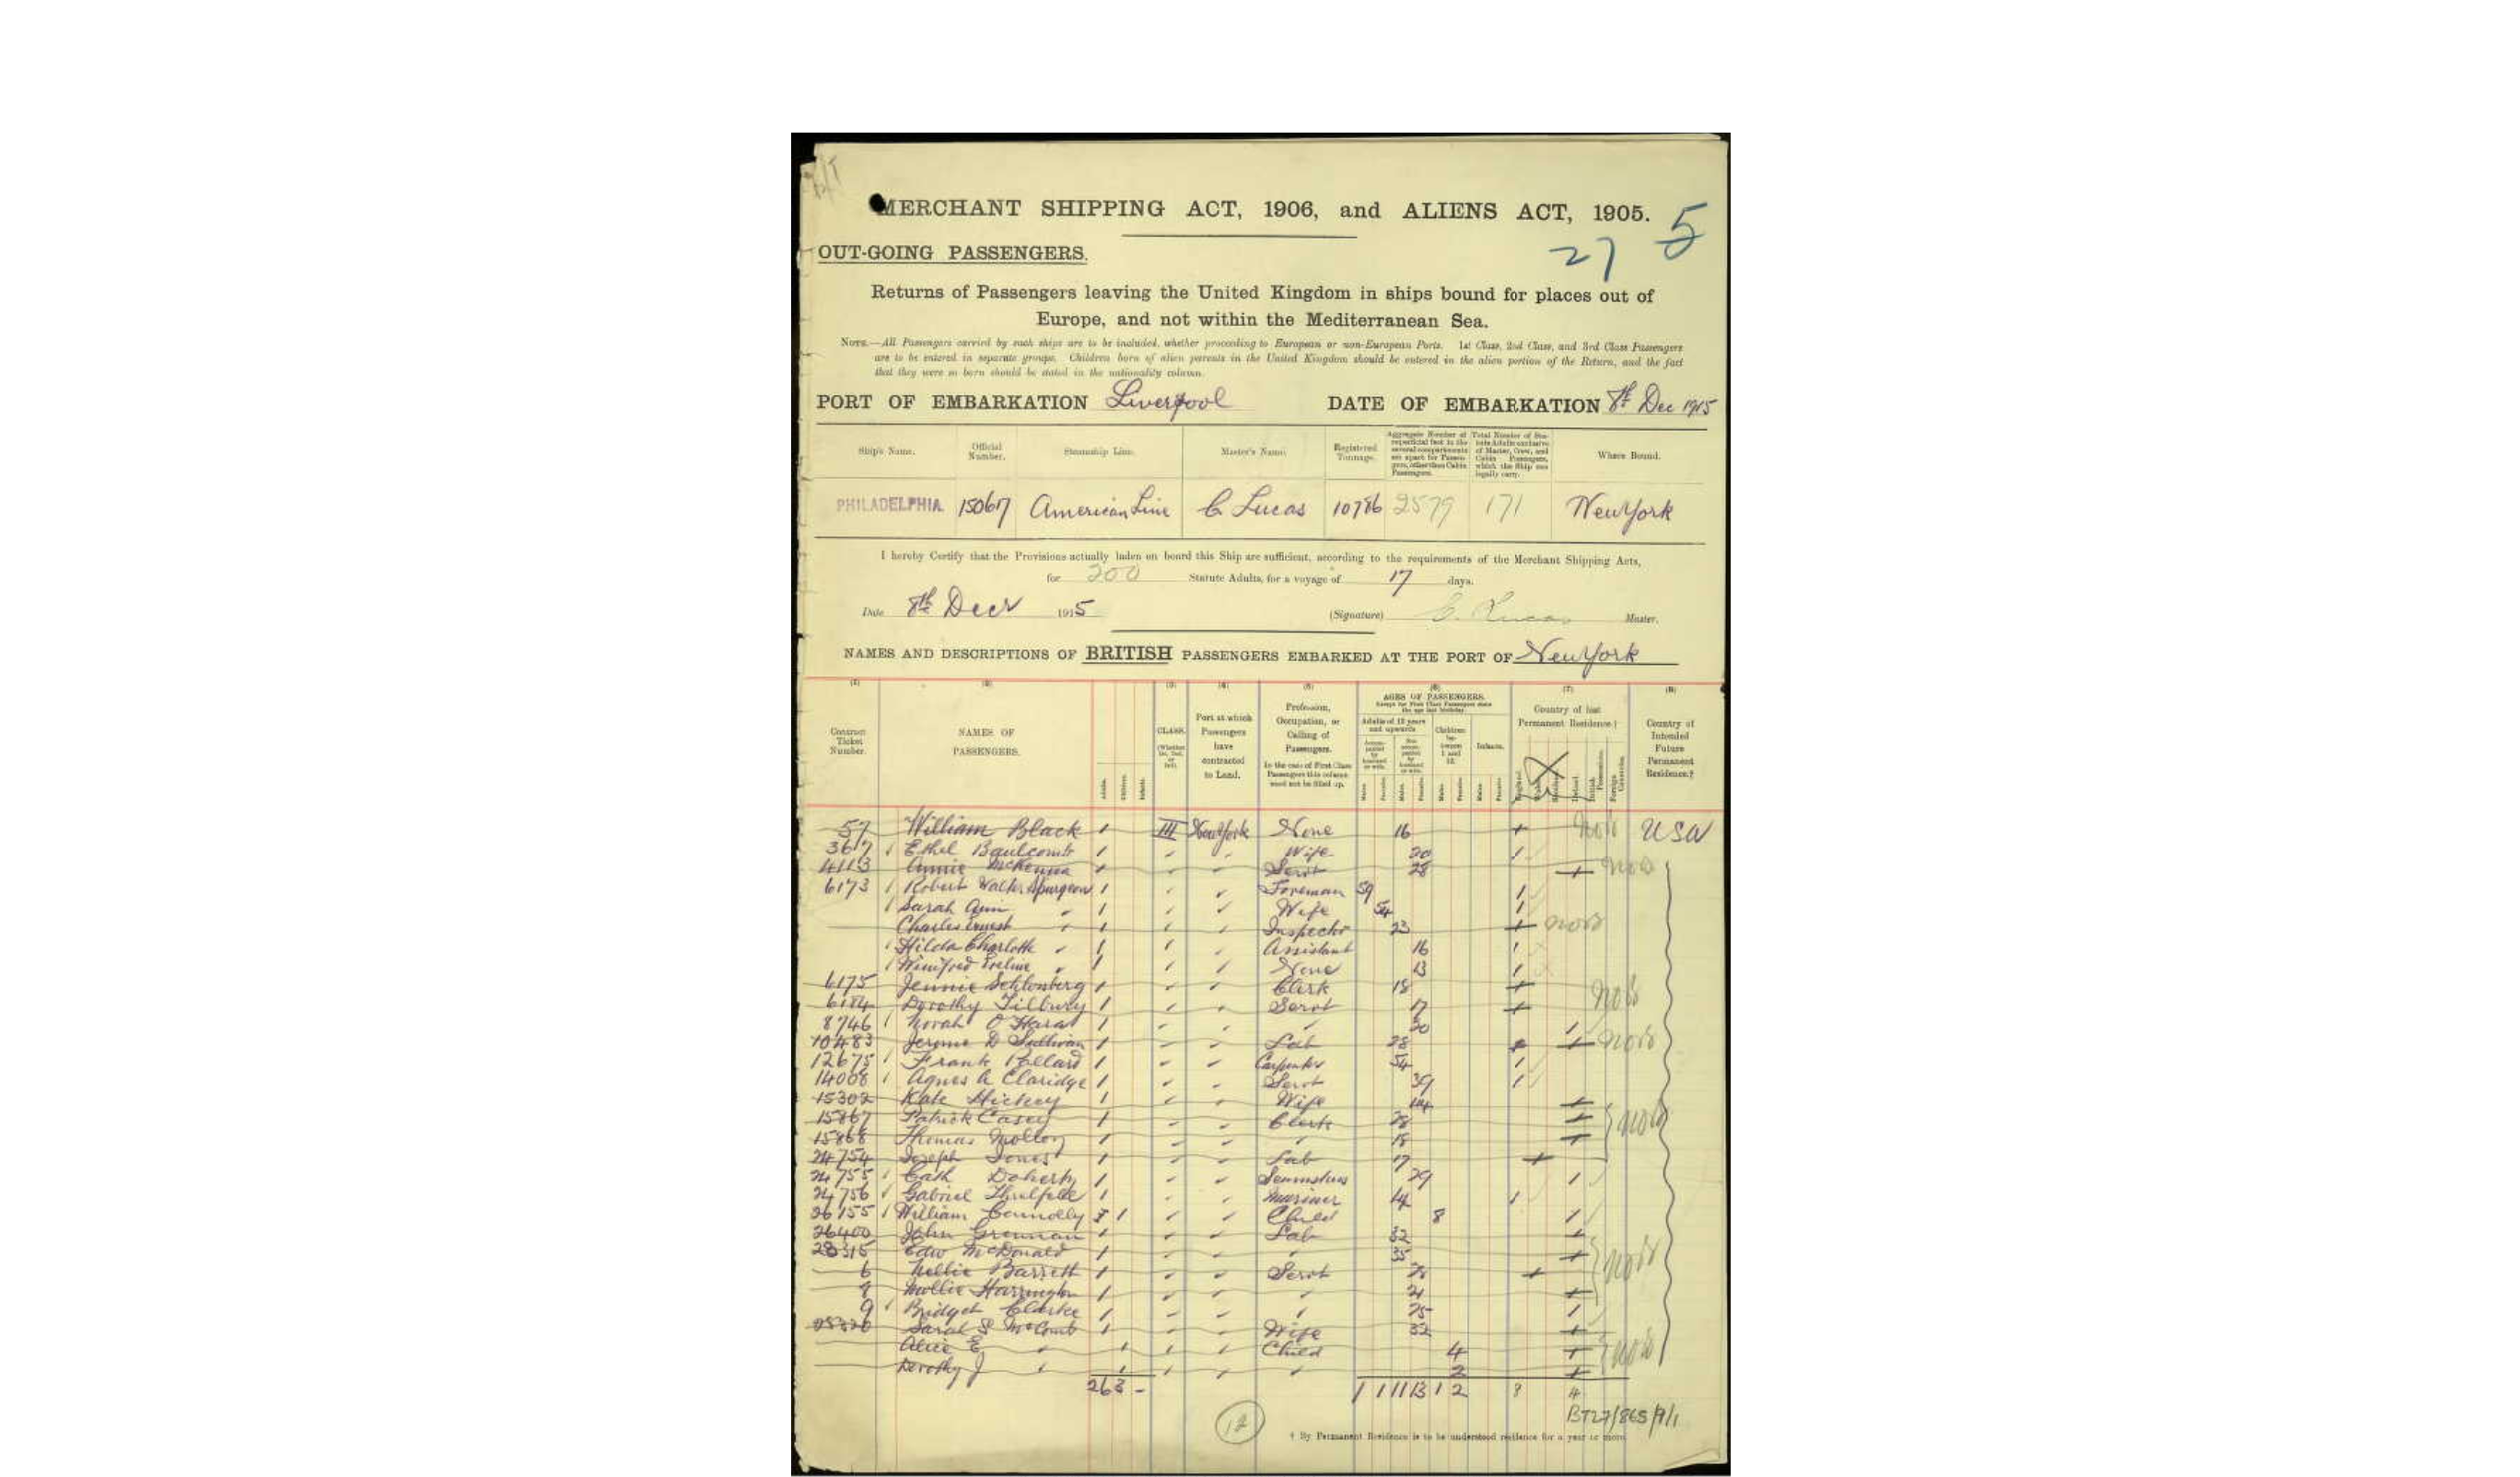 MERCHANT SHIPPING ACT, 1906, and ALIENS ACT, 1905.
5
27
OUT-GOING PASSENGERS.
Returns of Passengers leaving the United Kingdom in ships bound for places out of
Europe, and not within the Mediterranean Sea.
NOTE.—All Passengers carried by such ships are to be included, whether proceeding to European or non-European Ports. 1st Class, 2nd Class, and 3rd Class Passengers
are to be entered in separate groups. Children born of alien parents in the United Kingdom should be entered in the alien portion of the Return, and the fact
that they were so born should be stated in the nationality column.
PORT OF EMBARKATION Liverpool DATE OF EMBARKATION 8th Dec 1915
Ship's Name. Official Number. Steamship Line. Master's Name. Registered Tonnage. Aggregate Number of superficial feet in the several compartments set apart for Passengers, other than Cabin Passengers. Total Number of Statute Adults exclusive of Master, Crew, and Cabin Passengers, which the Ship can legally carry. Where Bound.
PHILADELPHIA 150617 American Line C Lucas 10786 2579 171 New York
I hereby Certify that the Provisions actually laden on board this Ship are sufficient, according to the requirements of the Merchant Shipping Acts,
for 200 Statute Adults, for a voyage of 17 days.
Date 8th Decr 1915 (Signature) C. Lucas Master.
NAMES AND DESCRIPTIONS OF BRITISH PASSENGERS EMBARKED AT THE PORT OF New York
(1) (2) (3) (4) (5) (6) (7) (8)
Contract Ticket Number. NAMES OF PASSENGERS. Adults. Children. Infants. CLASS. (Whether 1st, 2nd, or 3rd). Port at which Passengers have contracted to Land. Profession, Occupation, or Calling of Passengers. In the case of First Class Passengers this column need not be filled up. AGES OF PASSENGERS. Adults of 12 years and upwards Children between 1 and 12. Infants. Country of last Permanent Residence.† Country of Intended Future Permanent Residence.†
57 William Black 1 III New York None 16 USA
367 Ethel Baulcomb 1 Wife 20
4113 Annie McKenna 1 Servt 28
6173 Robert Walter Spurgeon 1 Foreman 59
Sarah Ann 1 Wife 54
Charles Ernest 1 Inspector 23
Hilda Charlotte 1 Assistant 16
Winifred 1 None 13
6175 Jennie Schlonberg 1 Clerk 18
6184 Dorothy Tilbury 1 Servt 17
8746 Norah O'Hara 1 30
10483 Jerome D Sullivan 1 Lab 28
12675 Frank Pollard 1 Carpenter 54
14008 Agnes A Claridge 1 Servt 39
15302 Kate Hickey 1 Wife 44
15867 Patrick Casey 1 Clerk
15868 Thomas Molloy 1 18
24754 Joseph Jones 1 Lab 17
24755 Cath Doherty 1 Seamstress 29
24756 Gabriel Threlfall 1 Mariner
26155 William Connolly 1 Child 8
26400 John Grennan 1 Lab 32
28315 Edw McDonald 1 35
6 Nellie Barrett 1 Servt
8 Mollie Harrington 1 21
9 Bridget Clarke 1 25
Sarah S McComb 1 Wife 32
Alice E 1 Child 4
Dorothy J 1 2
26 3 - 1 1 11 13 1 2 8 4
BT27/865/9/1
12
† By Permanent Residence is to be understood residence for a year or more.